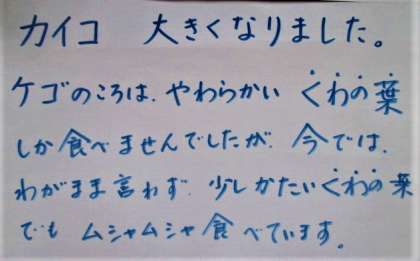 カイコ 大きくなりました。
ケゴのころは、やわらかい くわの葉
しか食べませんでしたが、今では、
わがまま言わず、少しかたいくわの葉
でも ムシャムシャ食べています。